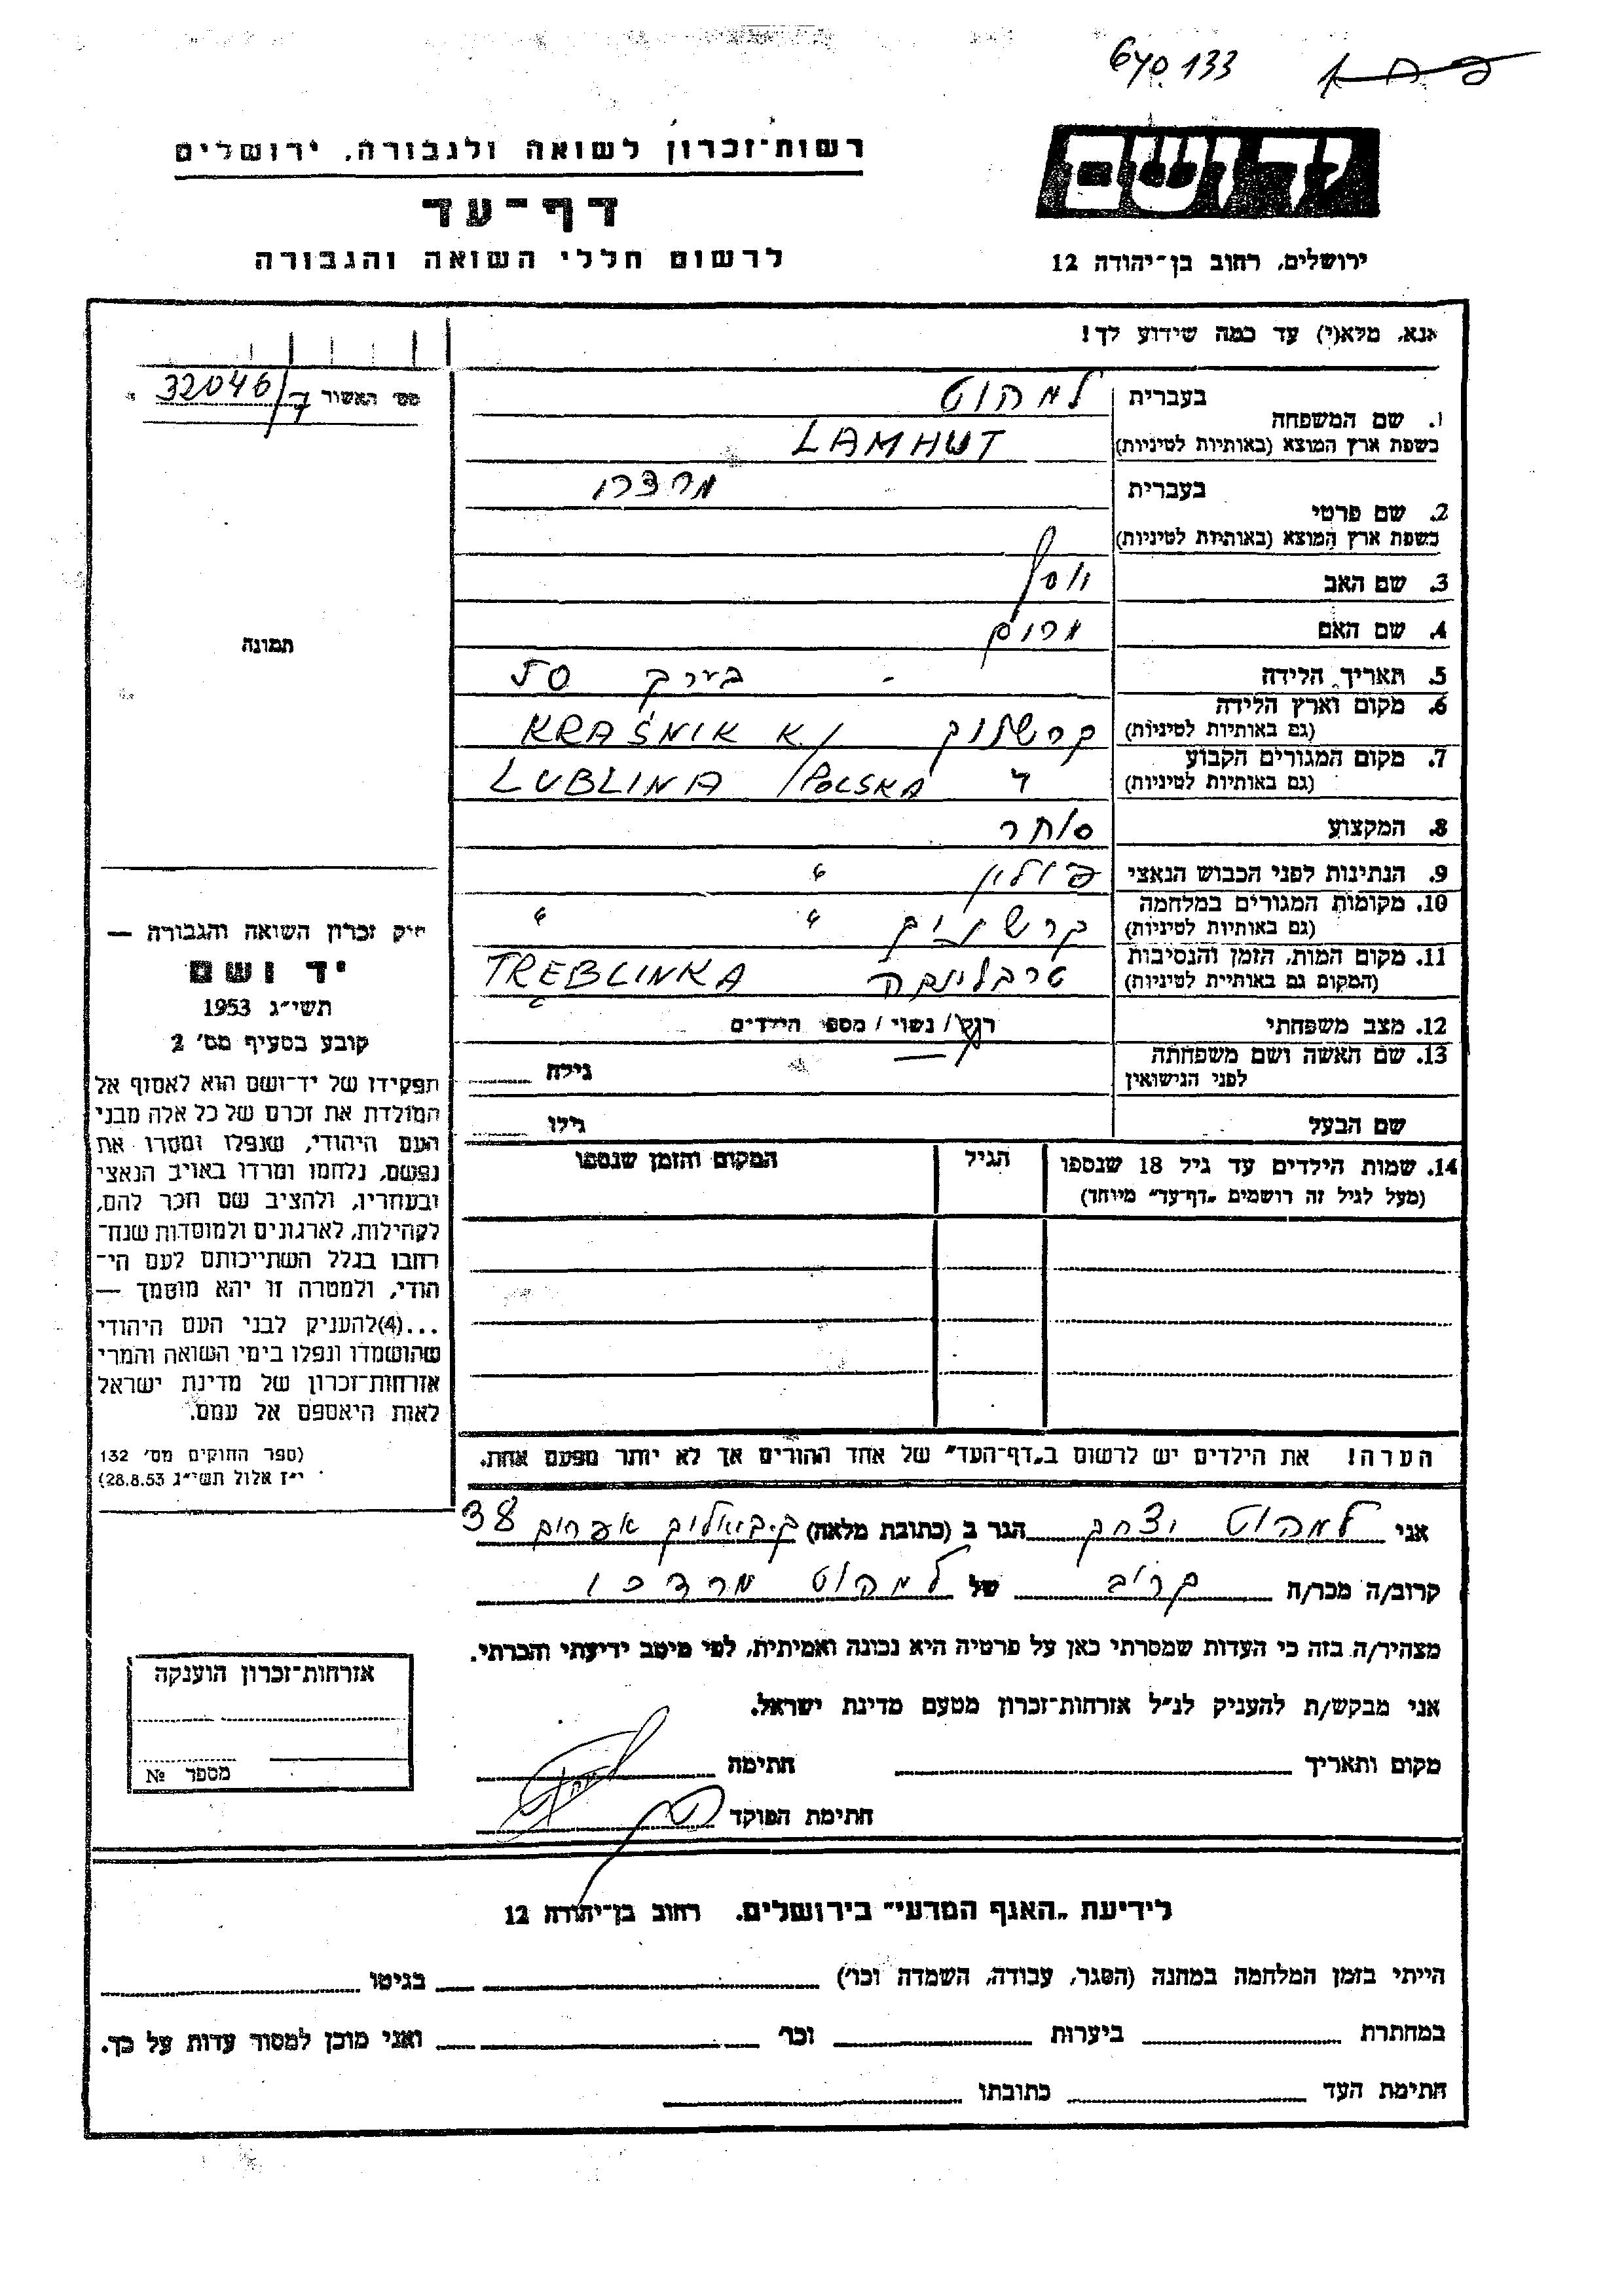 670133
יד ושם
רשות־זכרון לשואה ולגבורה, ירושלים
דף־עד
לרשום חללי השואה והגבורה
ירושלים, רחוב בן־יהודה 12
אנא, מלא(י) עד כמה שידוע לך!
מס׳ האשור 32046/ד
בעברית למהוט
1. שם המשפחה
בשפת ארץ המוצא (באותיות לטיניות) LAMHUT
בעברית
2. שם פרטי
בשפת ארץ המוצא (באותיות לטיניות)
3. שם האב יוסף
4. שם האם מרים
5. תאריך הלידה - בערך 50
6. מקום וארץ הלידה
(גם באותיות לטיניות) קרשניק KRAŚNIK K/
7. מקום המגורים הקבוע
(גם באותיות לטיניות) LUBLINA /POLSKA
8. המקצוע סוחר
9. הנתינות לפני הכבוש הנאצי פולין "
10. מקומות המגורים במלחמה
(גם באותיות לטיניות) קרשניק " "
11. מקום המות, הזמן והנסיבות
(המקום גם באותיות לטיניות) טרבלינקה TREBLINKA
12. מצב משפחתי רווק / נשוי / מספר הילדים
13. שם האשה ושם משפחתה
לפני הנישואין גילה
שם הבעל גילו
14. שמות הילדים עד גיל 18 שנספו הגיל המקום והזמן שנספו
(מעל לגיל זה רושמים „דף־עד״ מיוחד)
הערה! את הילדים יש לרשום ב„דף־העד״ של אחד ההורים אך לא יותר מפעם אחת.
תמונה
חיק זכרון השואה והגבורה —
יד ושם
תשי״ג 1953
קובע בסעיף מס׳ 2
תפקידו של יד־ושם הוא לאסוף אל
המולדת את זכרם של כל אלה מבני
העם היהודי, שנפלו ומסרו את
נפשם, נלחמו ומרדו באויב הנאצי
ובעוזריו, ולהציב שם וזכר להם,
לקהילות, לארגונים ולמוסדות שנח־
רחבו בגלל השתייכותם לעם הי־
הודי, ולמטרה זו יהא מוסמך —
...(4)להעניק לבני העם היהודי
שהושמדו ונפלו בימי השואה והמרי
אזרחות־זכרון של מדינת ישראל
לאות היאספם אל עמם.
(ספר החוקים מס׳ 132
י״ז אלול תשי״ג 28.8.53)
אני למהוט יצחק הגר ב (כתובת מלאה) ק.ביאליק אפרים 38
קרוב/ה מכר/ה קרוב של למהוט מרדכי
מצהיר/ה בזה כי העדות שמסרתי כאן על פרטיה היא נכונה ואמיתית, לפי מיטב ידיעתי והכרתי.
אני מבקש/ת להעניק לנ״ל אזרחות־זכרון מטעם מדינת ישראל.
מקום ותאריך חתימה
חתימת הפוקד
אזרחות־זכרון הוענקה
מספר №
לידיעת „האגף המדעי״ בירושלים. רחוב בן־יהודה 12
הייתי בזמן המלחמה במחנה (הסגר, עבודה, השמדה וכו׳) בגיטו
במחתרת ביערות וכו׳ ואני מוכן למסור עדות על כך.
חתימת העד כתובתו